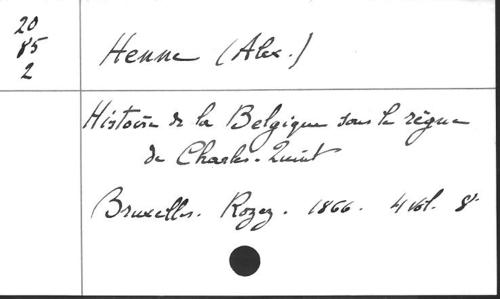 20
85
2
Henne (Alex.)
Histoire de la Belgique sous le règne
de Charles-Quint
Bruxelles. Rozez. 1866. 4 vol. 8°